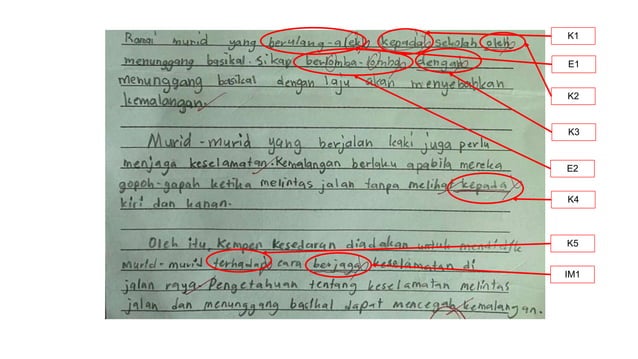 Ramai murid yang kepada sekolah oleh
menunggang basikal. sikap dengan
menunggang basikal dengan laju akan menyebabkan
kemalangan.
Murid-murid yang berjalan kaki juga perlu
menjaga keselamatan. Kemalangan berlaku apabila mereka
gopoh-gapah ketika melintas jalan tanpa melihat kepada
kiri dan kanan.
Oleh itu, Kempen kesedaran diadakan untuk
murid-murid terhadap cara berjaga keselamatan di
jalan raya. Pengetahuan tentang keselamatan melintas
jalan dan menunggang basikal dapat mencegah kemalangan.
K1
E1
K2
K3
E2
K4
K5
IM1